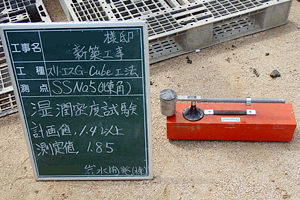 工事名 様邸
新築工事
工種 スリーエスG-Cube工法
測点 SSNo5(隅角)
湿潤密度試験
計画値、1.4以上
測定値、1.85